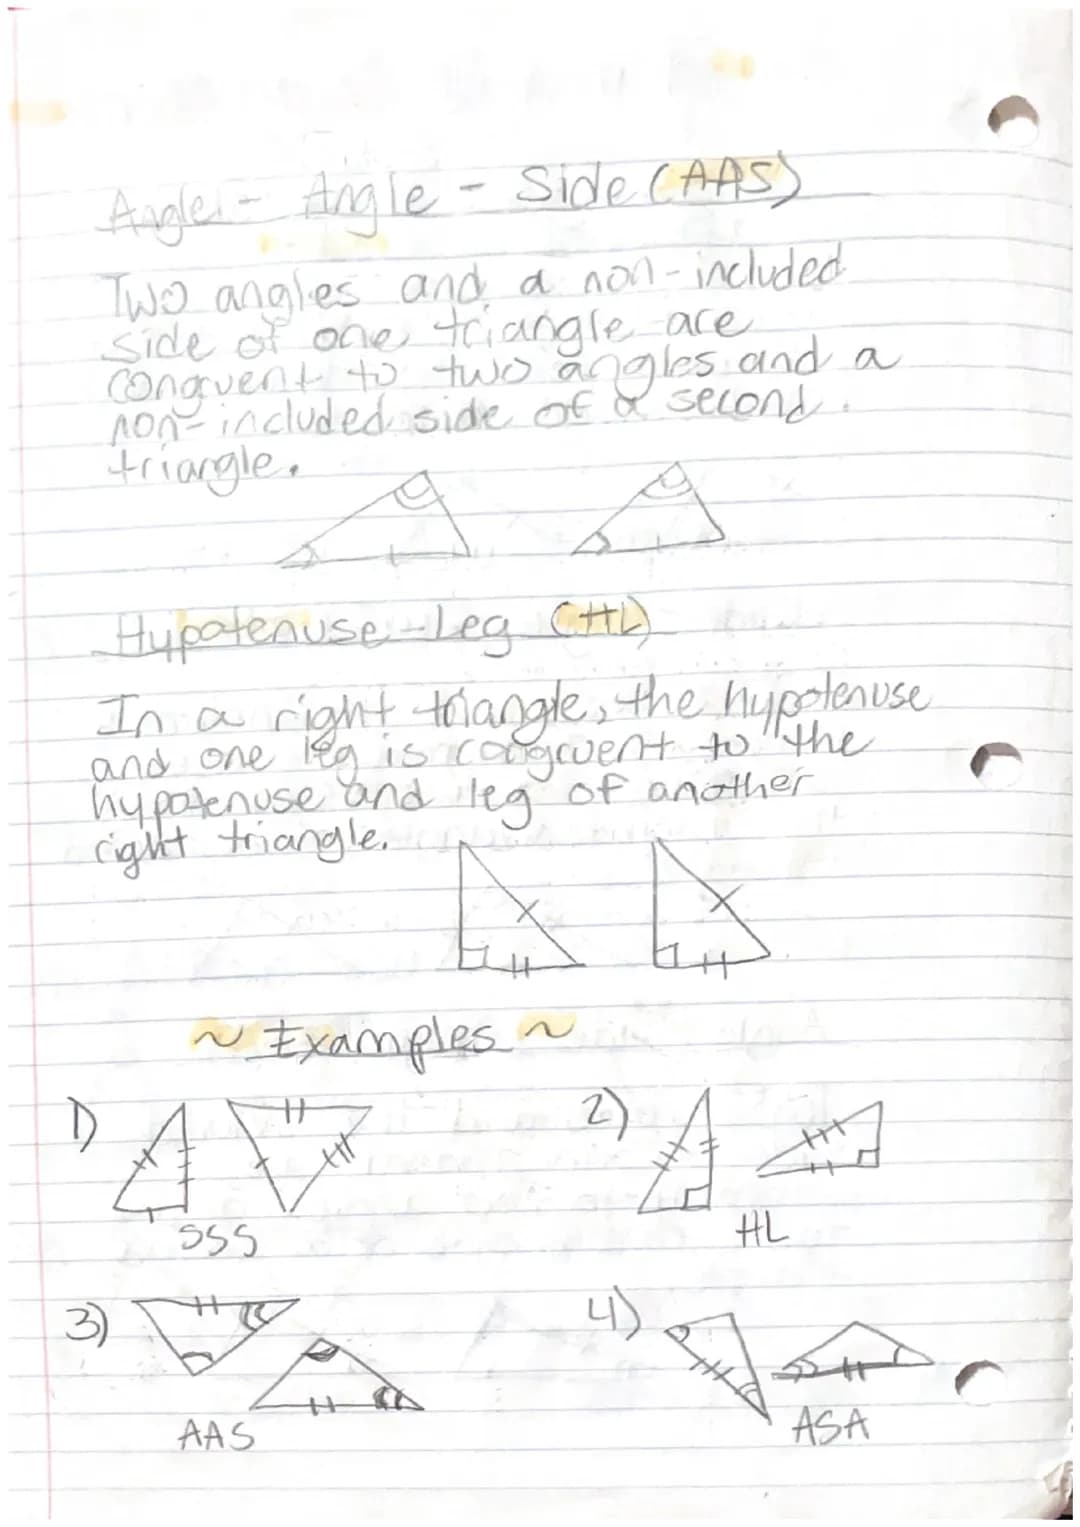 Angle - Angle - Side (AAS)
Two angles and a non-included
side of one triangle are
congruent to two angles and a
non-included side of a second
triangle.
Hypotenuse-Leg (HL)
In a right triangle, the hypotenuse
and one leg is congruent to the
hypotenuse and leg of another
right triangle.
~ Examples ~
1) 2)
SSS HL
3) 4)
AAS ASA